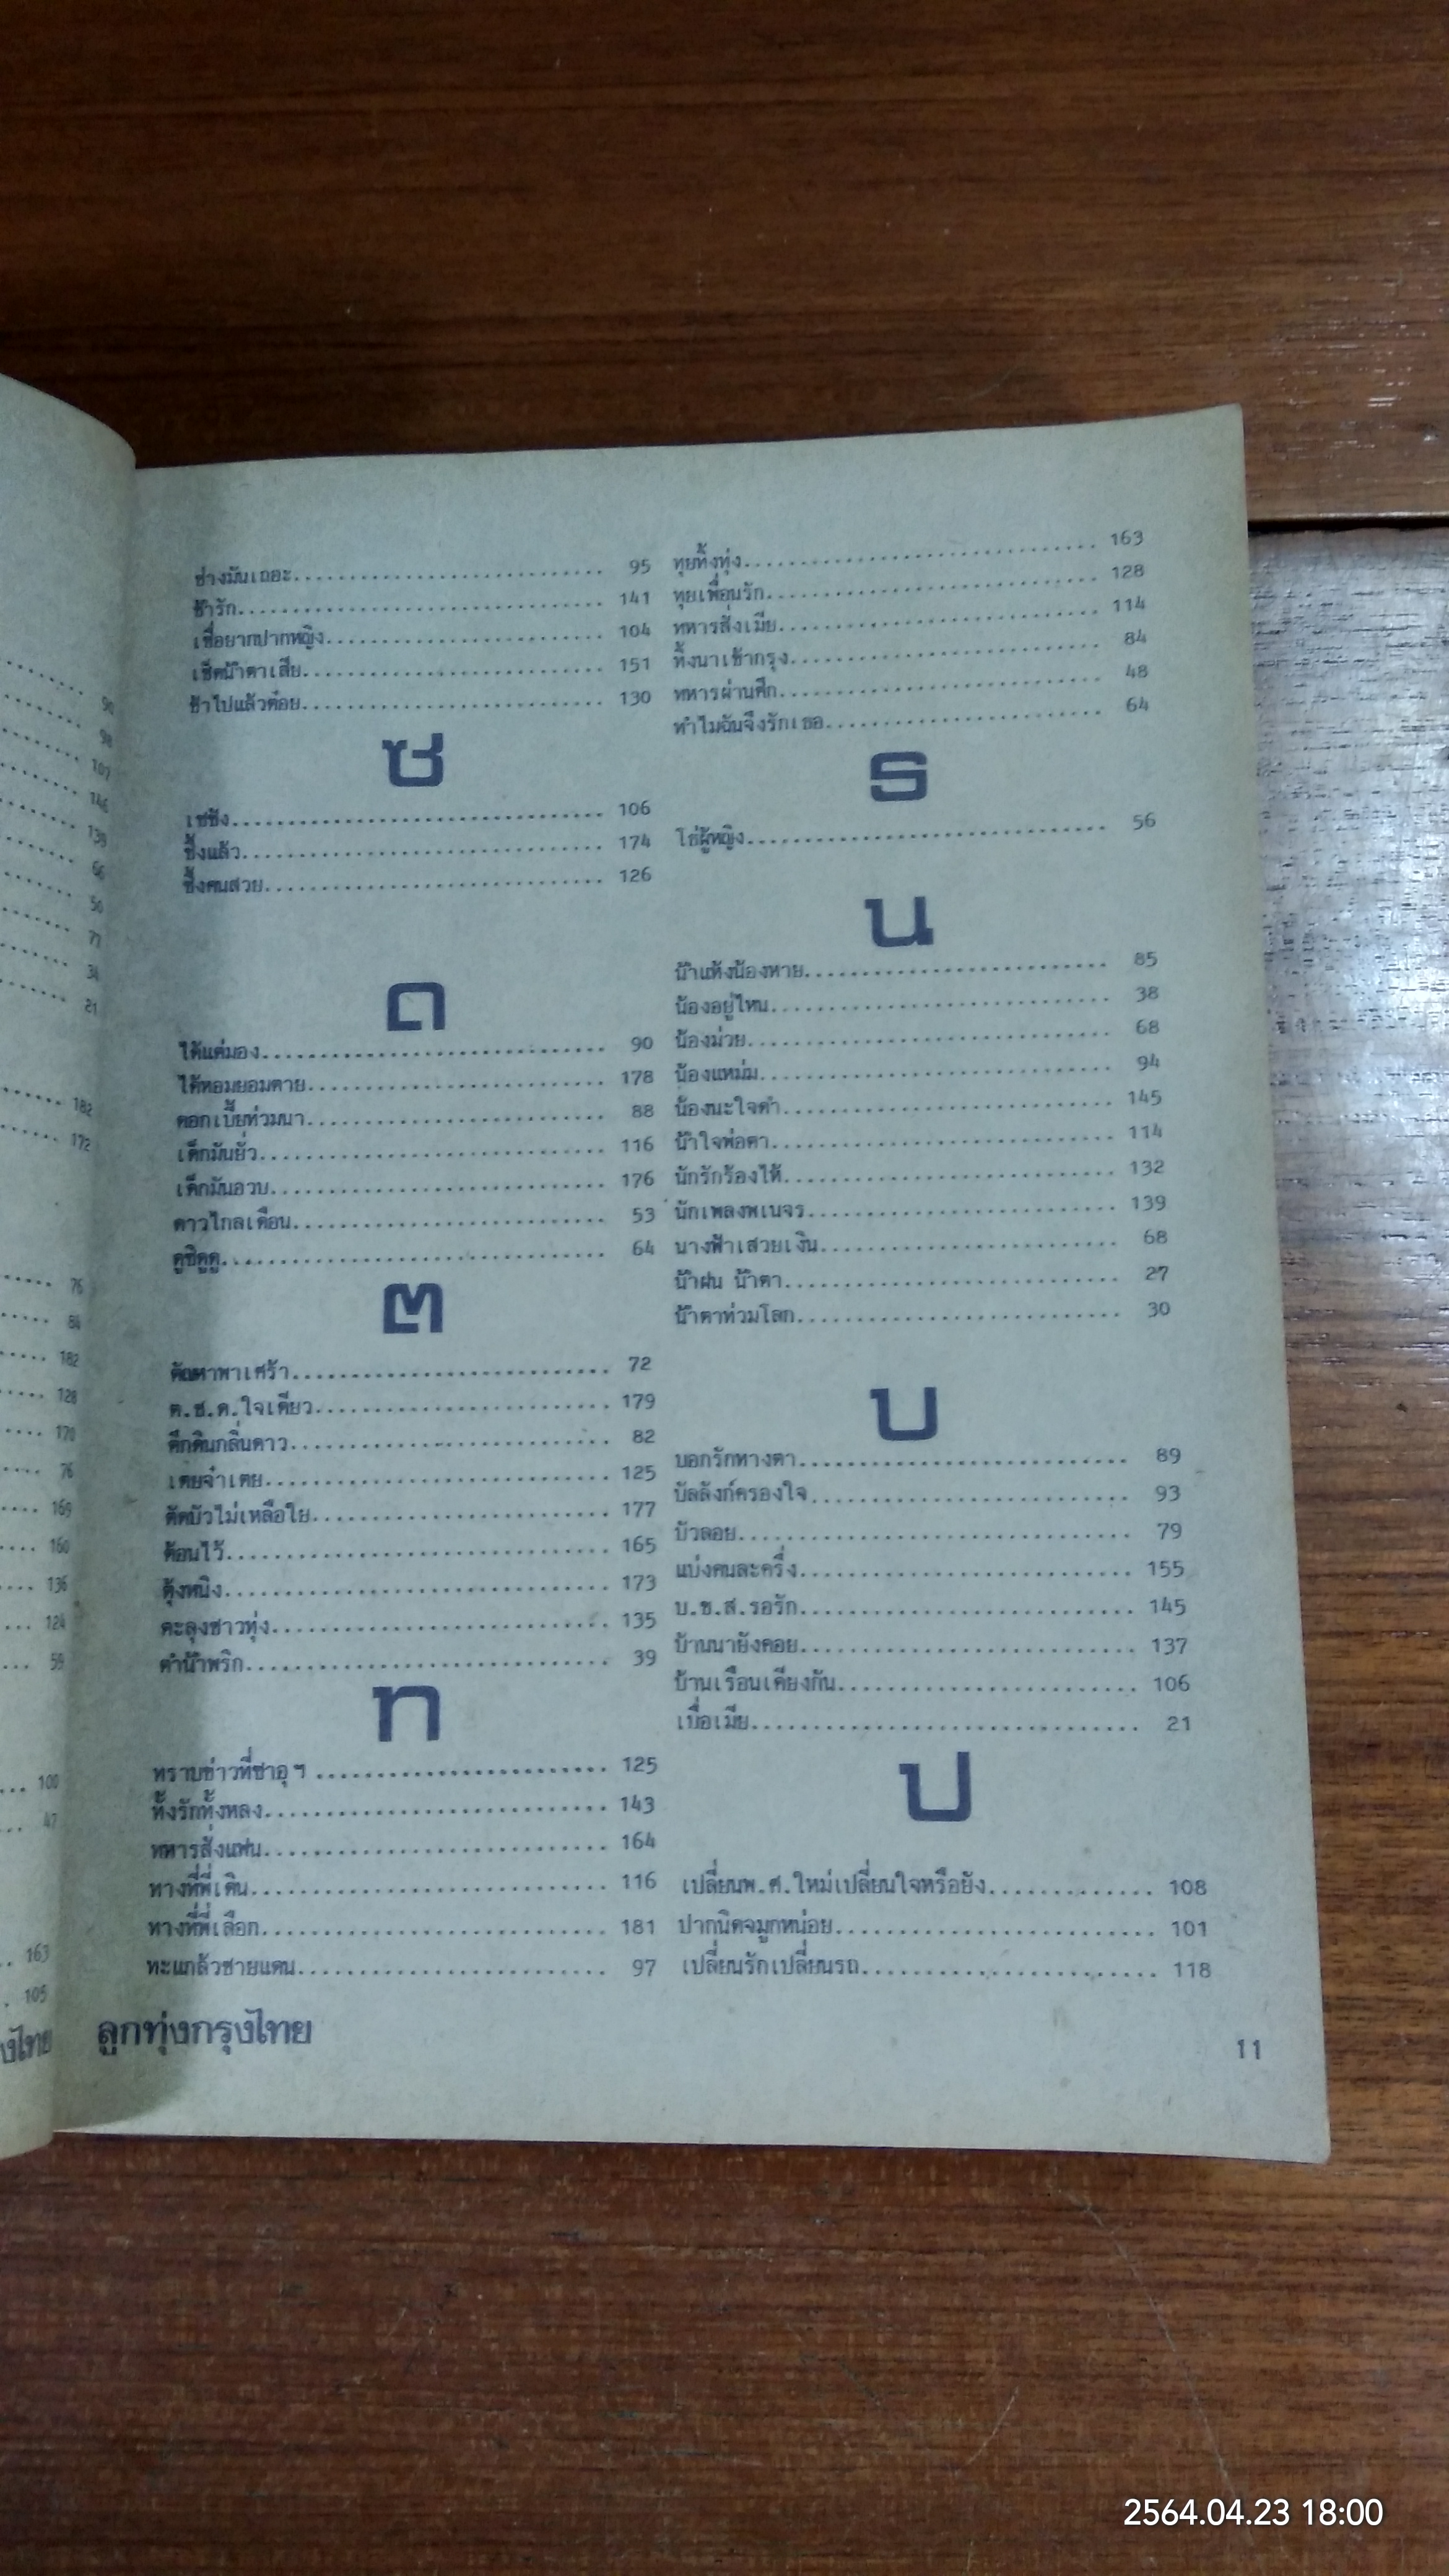 ช่างมันเถอะ 95
ช้ำรัก 141
เชื่อยากปากหญิง 104
เช็ดน้ำตาเสีย 151
ช้าไปแล้วต๋อย 130
ซ
เซซัง 106
ซึ้งแล้ว 174
ซึ้งคนสวย 126
ด
ได้แต่มอง 90
ได้หอมยอมตาย 178
ดอกเบี้ยท่วมนา 88
เด็กมันยั่ว 116
เด็กมันอวบ 176
ดาวไกลเดือน 53
ดูซิดูดู 64
ต
ตัณหาพาเศร้า 72
ต.ช.ด.ใจเดียว 179
ตึกดินกลิ่นดาว 82
เตยจ๋าเตย 125
ตัดบัวไม่เหลือใย 177
ต้อนไว้ 165
ตุ้งหนิง 173
ตะลุงชาวทุ่ง 135
ตำน้ำพริก 39
ท
ทราบข่าวที่ซาอุฯ 125
ทั้งรักทั้งหลง 143
ทหารสั่งแฟน 164
ทางที่พี่เดิน 116
ทางที่พี่เลือก 181
ทะแกล้วชายแดน 97
ทุยทิ้งทุ่ง 163
ทุยเพื่อนรัก 128
ทหารสั่งเมีย 114
ทิ้งนาเข้ากรุง 84
ทหารผ่านศึก 48
ทำไมฉันจึงรักเธอ 64
ธ
โธ่ผู้หญิง 56
น
น้ำแห้งน้องหาย 85
น้องอยู่ไหน 38
น้องม่วย 68
น้องแหม่ม 94
น้องนะใจดำ 145
น้ำใจพ่อตา 114
นักรักร้องไห้ 132
นักเพลงพเนจร 139
นางฟ้าเสวยเงิน 68
น้ำฝน น้ำตา 27
น้ำตาท่วมโลก 30
บ
บอกรักทางตา 89
บัลลังก์ครองใจ 93
บัวลอย 79
แบ่งคนละครึ่ง 155
บ.ข.ส.รอรัก 145
บ้านนายังคอย 137
บ้านเรือนเคียงกัน 106
เบื่อเมีย 21
ป
เปลี่ยนพ.ศ.ใหม่เปลี่ยนใจหรือยัง 108
ปากนิดจมูกหน่อย 101
เปลี่ยนรักเปลี่ยนรถ 118
ลูกทุ่งกรุงไทย
11
2564.04.23 18:00